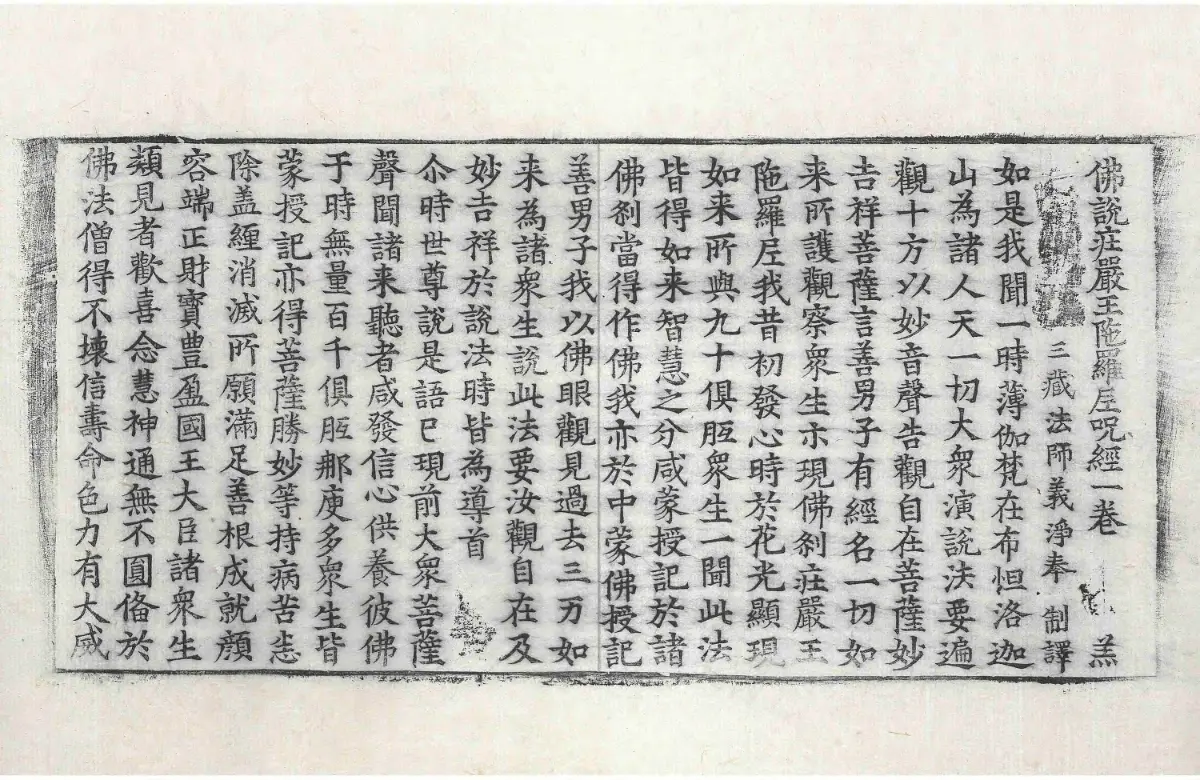 佛說莊嚴王陁羅尼呪經一卷 羔
三藏法師義淨奉 制譯
如是我聞一時薄伽梵在布怛洛迦
山為諸人天一切大衆演說法要遍
觀十方以妙音聲告觀自在菩薩妙
吉祥菩薩言善男子有經名一切如
来所護觀察衆生示現佛刹莊嚴王
陁羅尼我昔初發心時於花光顯現
如来所與九十俱胝衆生一聞此法
皆得如来智慧之分咸蒙授記於諸
佛刹當得作佛我亦於中蒙佛授記
善男子我以佛眼觀見過去三万如
来為諸衆生說此法要汝觀自在及
妙吉祥於說法時皆為導首
尒時世尊說是語已現前大衆菩薩
聲聞諸来聽者咸發信心供養彼佛
于時無量百千俱胝那庾多衆生皆
蒙授記亦得菩薩勝妙等持病苦悉
除盖纏消滅所願滿足善根成就顔
容端正財寶豊盈國王大臣諸衆生
類見者歡喜念慧神通無不圓俻於
佛法僧得不壊信壽命色力有大威